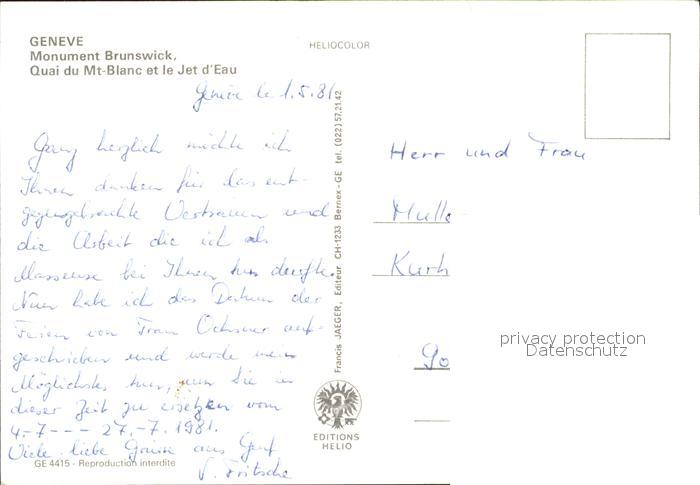 GENEVE
Monument Brunswick,
Quai du Mt-Blanc et le Jet d'Eau
HELIOCOLOR
Genève le 1.5.81
Ganz herzlich möchte ich
Ihnen danken für das ent-
gegengebrachte Vertrauen und
die Arbeit die ich als
Masseuse bei Ihnen tun durfte.
Nun habe ich das Datum der
Ferien von Frau Ochsner auf-
geschrieben und werde mein
Möglichstes tun, um Sie in
dieser Zeit zu ersetzen vom
4.-7 --- 27.-7. 1981.
Viele liebe Grüsse aus Genf
V. Fritsche
GE 4415 - Reproduction interdite
Francis JAEGER, Editeur CH-1233 Bernex-GE tel. (022) 57.21.42
EDITIONS
HELIO
Herr und Frau
Mulle
Kurh
Go
privacy protection
Datenschutz